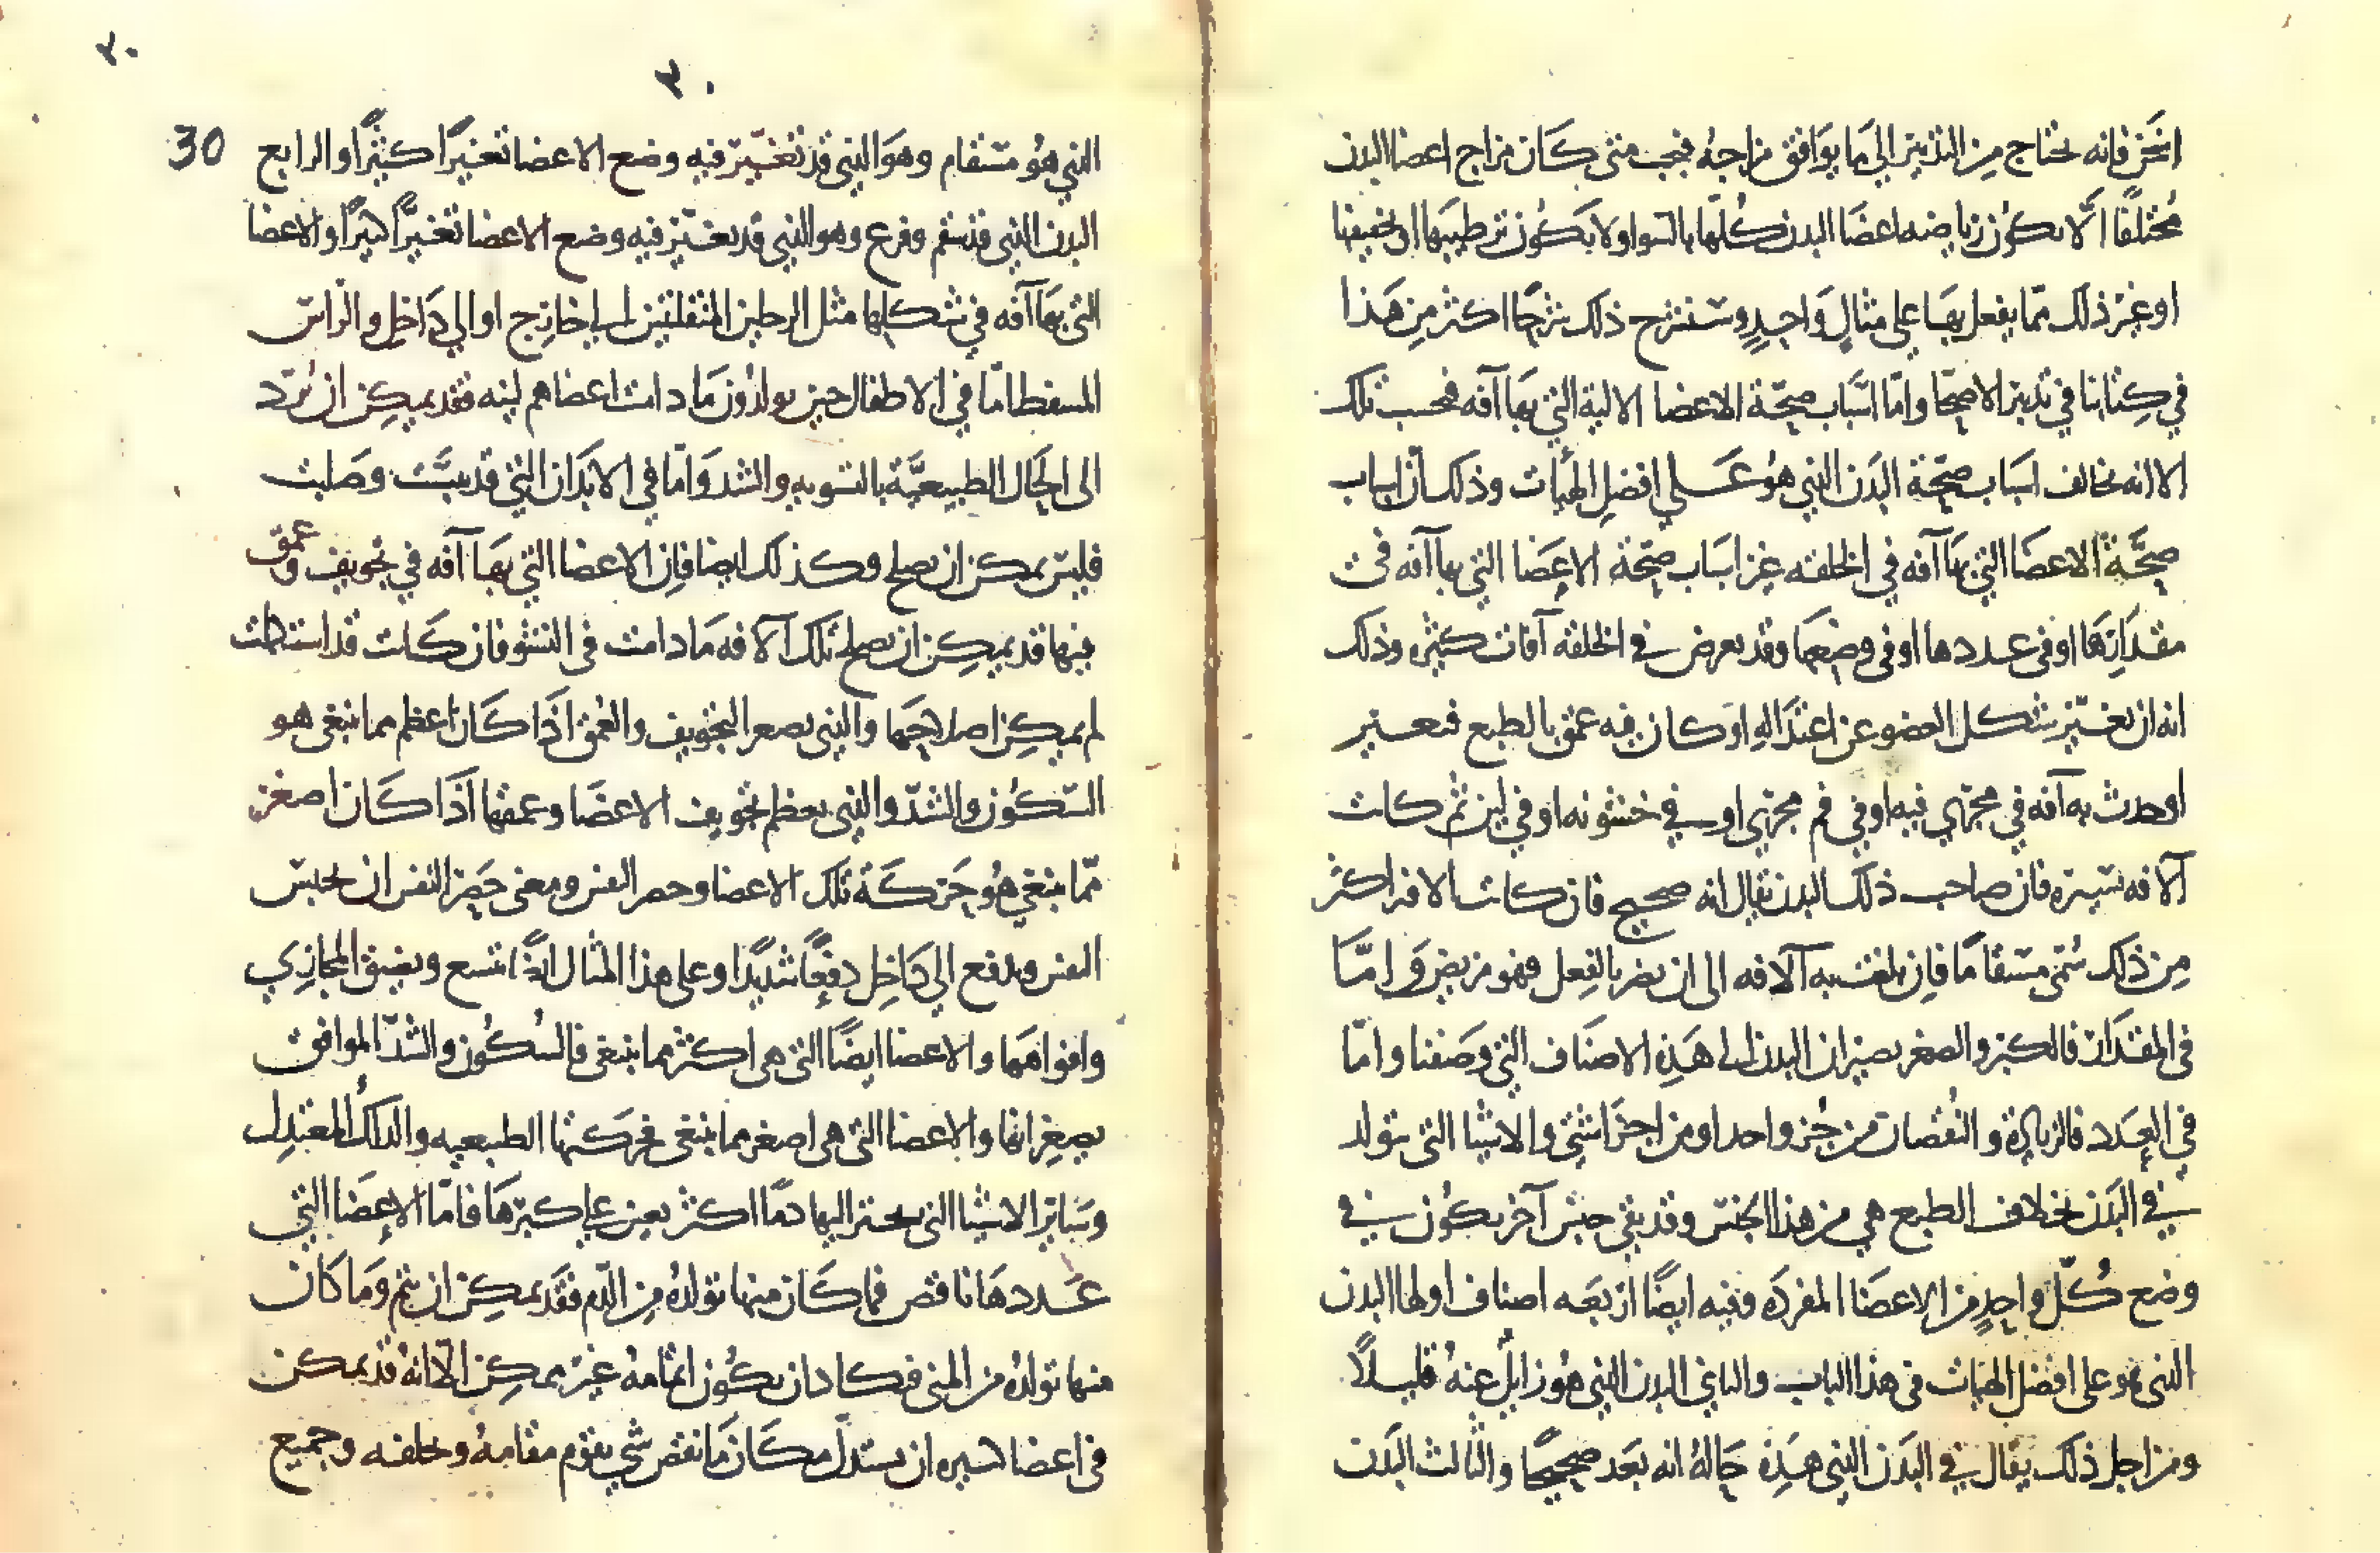 اسخن فانه يحتاج من التدبير الى ما يوافق مزاجه فيجب متى كان مزاج اعضا البدن
مُختلفًا الّا يكون رياضه اعضا البدن كلّها بالسوا ولا يكون ترطيبها او تجفيفها
او غير ذلك ممّا يفعل بها على مثالٍ وَاحِدٍ وسنشرح ذلك شرحًا اكثر من هَذا
في كتابنا في تدبير الاصحّا وامّا اسبَاب صحّة الاعضا الالية التي بها آفه فبحسب تلك
الا انه يخالف اسبَاب صحّة البَدَن الذي هُو عَلى افضلِ الهيأت وذلك أن اسباب
صحَّة الاعضَا التي بهَا آفه في الخلقه غير اسبَاب صحّة الاعِضَا التي بها آفه في
مقدَارِهَا او في عددها او في وضِعهَا وقد يعرض في الخلقه آفات كثيره وذلك
انه ان تغيّر شكل العضو عن اعتدَالهِ او كان فيه عمق بالطبع فتغير
او حدث به آفه في مجرَي فيه او في فم مجرَي او في خشونه او في لين ثم كانت
آلافه يسيره فان صاحب ذلك البدن يقال انه صحيح فان كانت الافه اكثر
مِن ذلك سُمّي مسقامًا فاِن بلغت به آلافه الى ان يضر بالفِعل فهو مريض وَامّا
في المقدَار فالكبر والصغر يصيران البدن الى هَذِه الاصنَاف التي وصَفنا وامّا
في العِدَد فالزيادة والنُقصان من جُز واحد او من اجزَا شتي والاشيا التي تتولد
في البَدَن بخلاف الطبع هي من هذا الجنس وقد بقي جنس آخر يكون في
وضع كُلّ واحِدٍ من الاعضَا المفردَه وفيه ايضًا اربعَه اصناف اولها البدن
الذي هو على افضل الهيات في هذا الباب والثاني البدن الذي هُو زايلٌ عنهُ قليلًا
ومن اجل ذلك يقال في البَدَن الذي هَذِه حَالهُ انه بَعد صحيحًا والثالث البَدَن
٣٠
٣٠
30
الذي هُو مسقام وهوَ الذي قد تغيّر فيه وضع الاعضا تغيّرًا كثيرًا والرابع
البدن الذي قد سقم وفرغ وهو الذي قد يغيّر فيه وضع الاعضا تغيّرًا كبيرًا والاعضا
التي بهَا آفه في شكلها مثل الرجلين المنقلبتين الى خارِج او الي دَاخِل والرّاس
المسفط امّا في الاطفال حين يولدُون مَا دامت اعضاهم لينه فقد يمكِن ان تُردّ
الى الحَال الطبيعيَّة بالتسويه والشد وَامّا في الابدَان التي قد يبسَت وصَلبت
فليس يمكن ان يصلح وكذلك ايضا فاِن الاعضا التي بهَا آفه في تجويف وعمق
فيها قد يمكِن ان يصلح تلك آلافه مَا دامت في النشو فان كانت قد استكملت
لم يمكِن اصلاحهَا والذي يصغر التجويف والعُمق اذَا كَان اعظم مما ينبغي هو
السّكُون والشدّ والذي يعظم تجويف الاعضَا وعمقها اذَا كَان اصغر
ممّا ينبغي هُو حَركَة تلك الاعضا وحصر النفس ومعنى حَصر النفس ان يحبس
النفس ويدفع الي دَاخِل دفعًا شديدًا وعلى هذا المثال ايضًا تتسع ويضيق المجاري
وافواهَهَا والاعضا ايضًا التي هي اكثر مما ينبغي فالسُكُون والشدّ الموافق
يصغِرانها والاعضا التي هي اصغر مما ينبغي فحركتها الطبيعيه والدَّلك المعتدِل
وسَاير الاشيا التي تجتذب اليها دمًا اكثر يعين علي كبرهَا فامّا الاعِضَا التي
عَددهَا ناقص فما كَان منها تولدُه من الدّم فقَد يمكِن ان يتم وَما كان
منها تولدُه من المني فيكاد ان يكون اتمامهُ غير ممكِن الّا انهُ قد يمكن
في اعضا كثيره ان يستدلّ مكَان مَا نقص شي يقوم مقامهُ ويخلفه وجميع